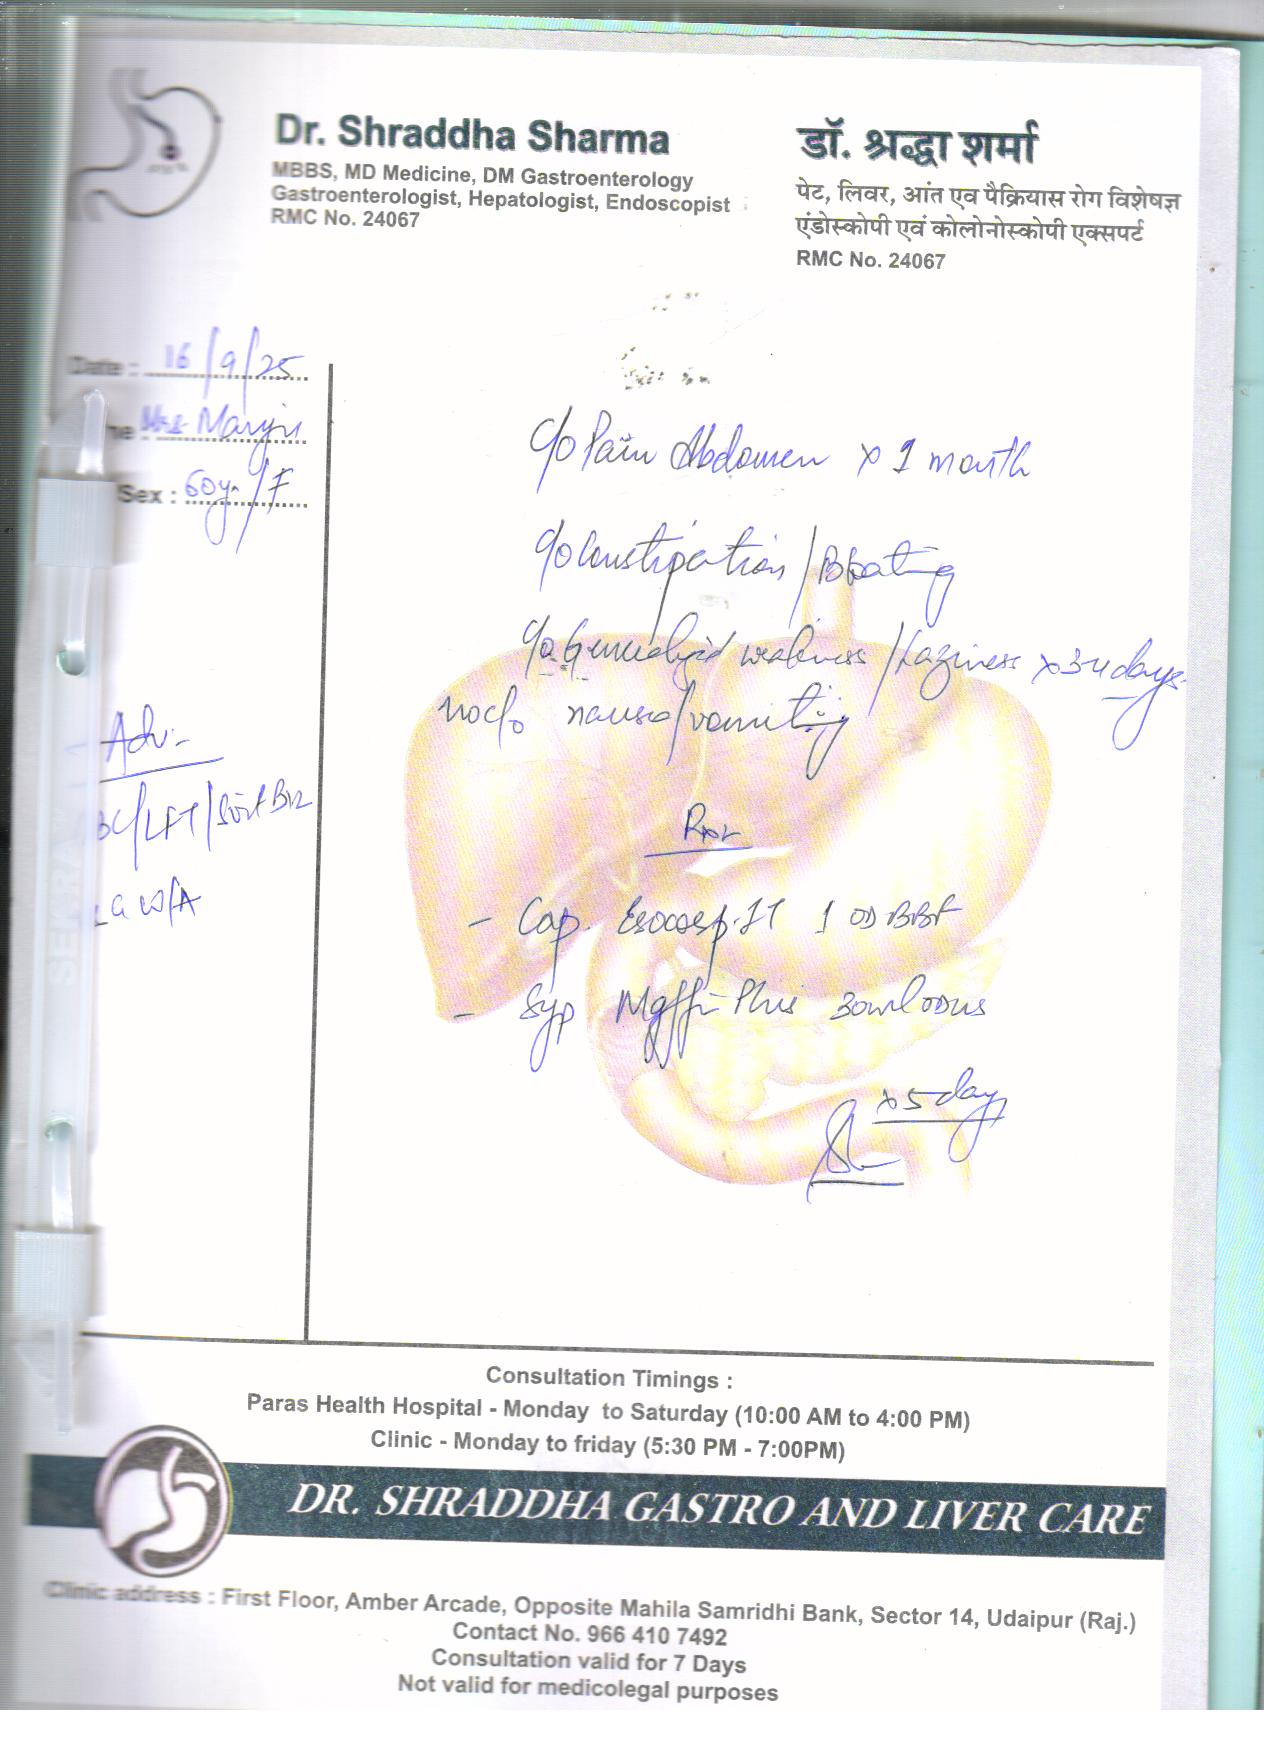 Dr. Shraddha Sharma
MBBS, MD Medicine, DM Gastroenterology
Gastroenterologist, Hepatologist, Endoscopist
RMC No. 24067
डॉ. श्रद्धा शर्मा
पेट, लिवर, आंत एव पैंक्रियास रोग विशेषज्ञ
एंडोस्कोपी एवं कोलोनोस्कोपी एक्सपर्ट
RMC No. 24067
Date : 16/9/25
Mrs Manju
Sex : 60y. /F
c/o Pain Abdomen x 1 month
c/o Constipation / Bloating
c/o Generalized weakness / Laziness x 3-4 days
no c/o nausea/vomiting
Adv:-
/LFT/
Cap. 1 OD BBF
Syp Plus 30ml
x 5 day
Consultation Timings :
Paras Health Hospital - Monday to Saturday (10:00 AM to 4:00 PM)
Clinic - Monday to friday (5:30 PM - 7:00PM)
DR. SHRADDHA GASTRO AND LIVER CARE
Clinic address : First Floor, Amber Arcade, Opposite Mahila Samridhi Bank, Sector 14, Udaipur (Raj.)
Contact No. 966 410 7492
Consultation valid for 7 Days
Not valid for medicolegal purposes